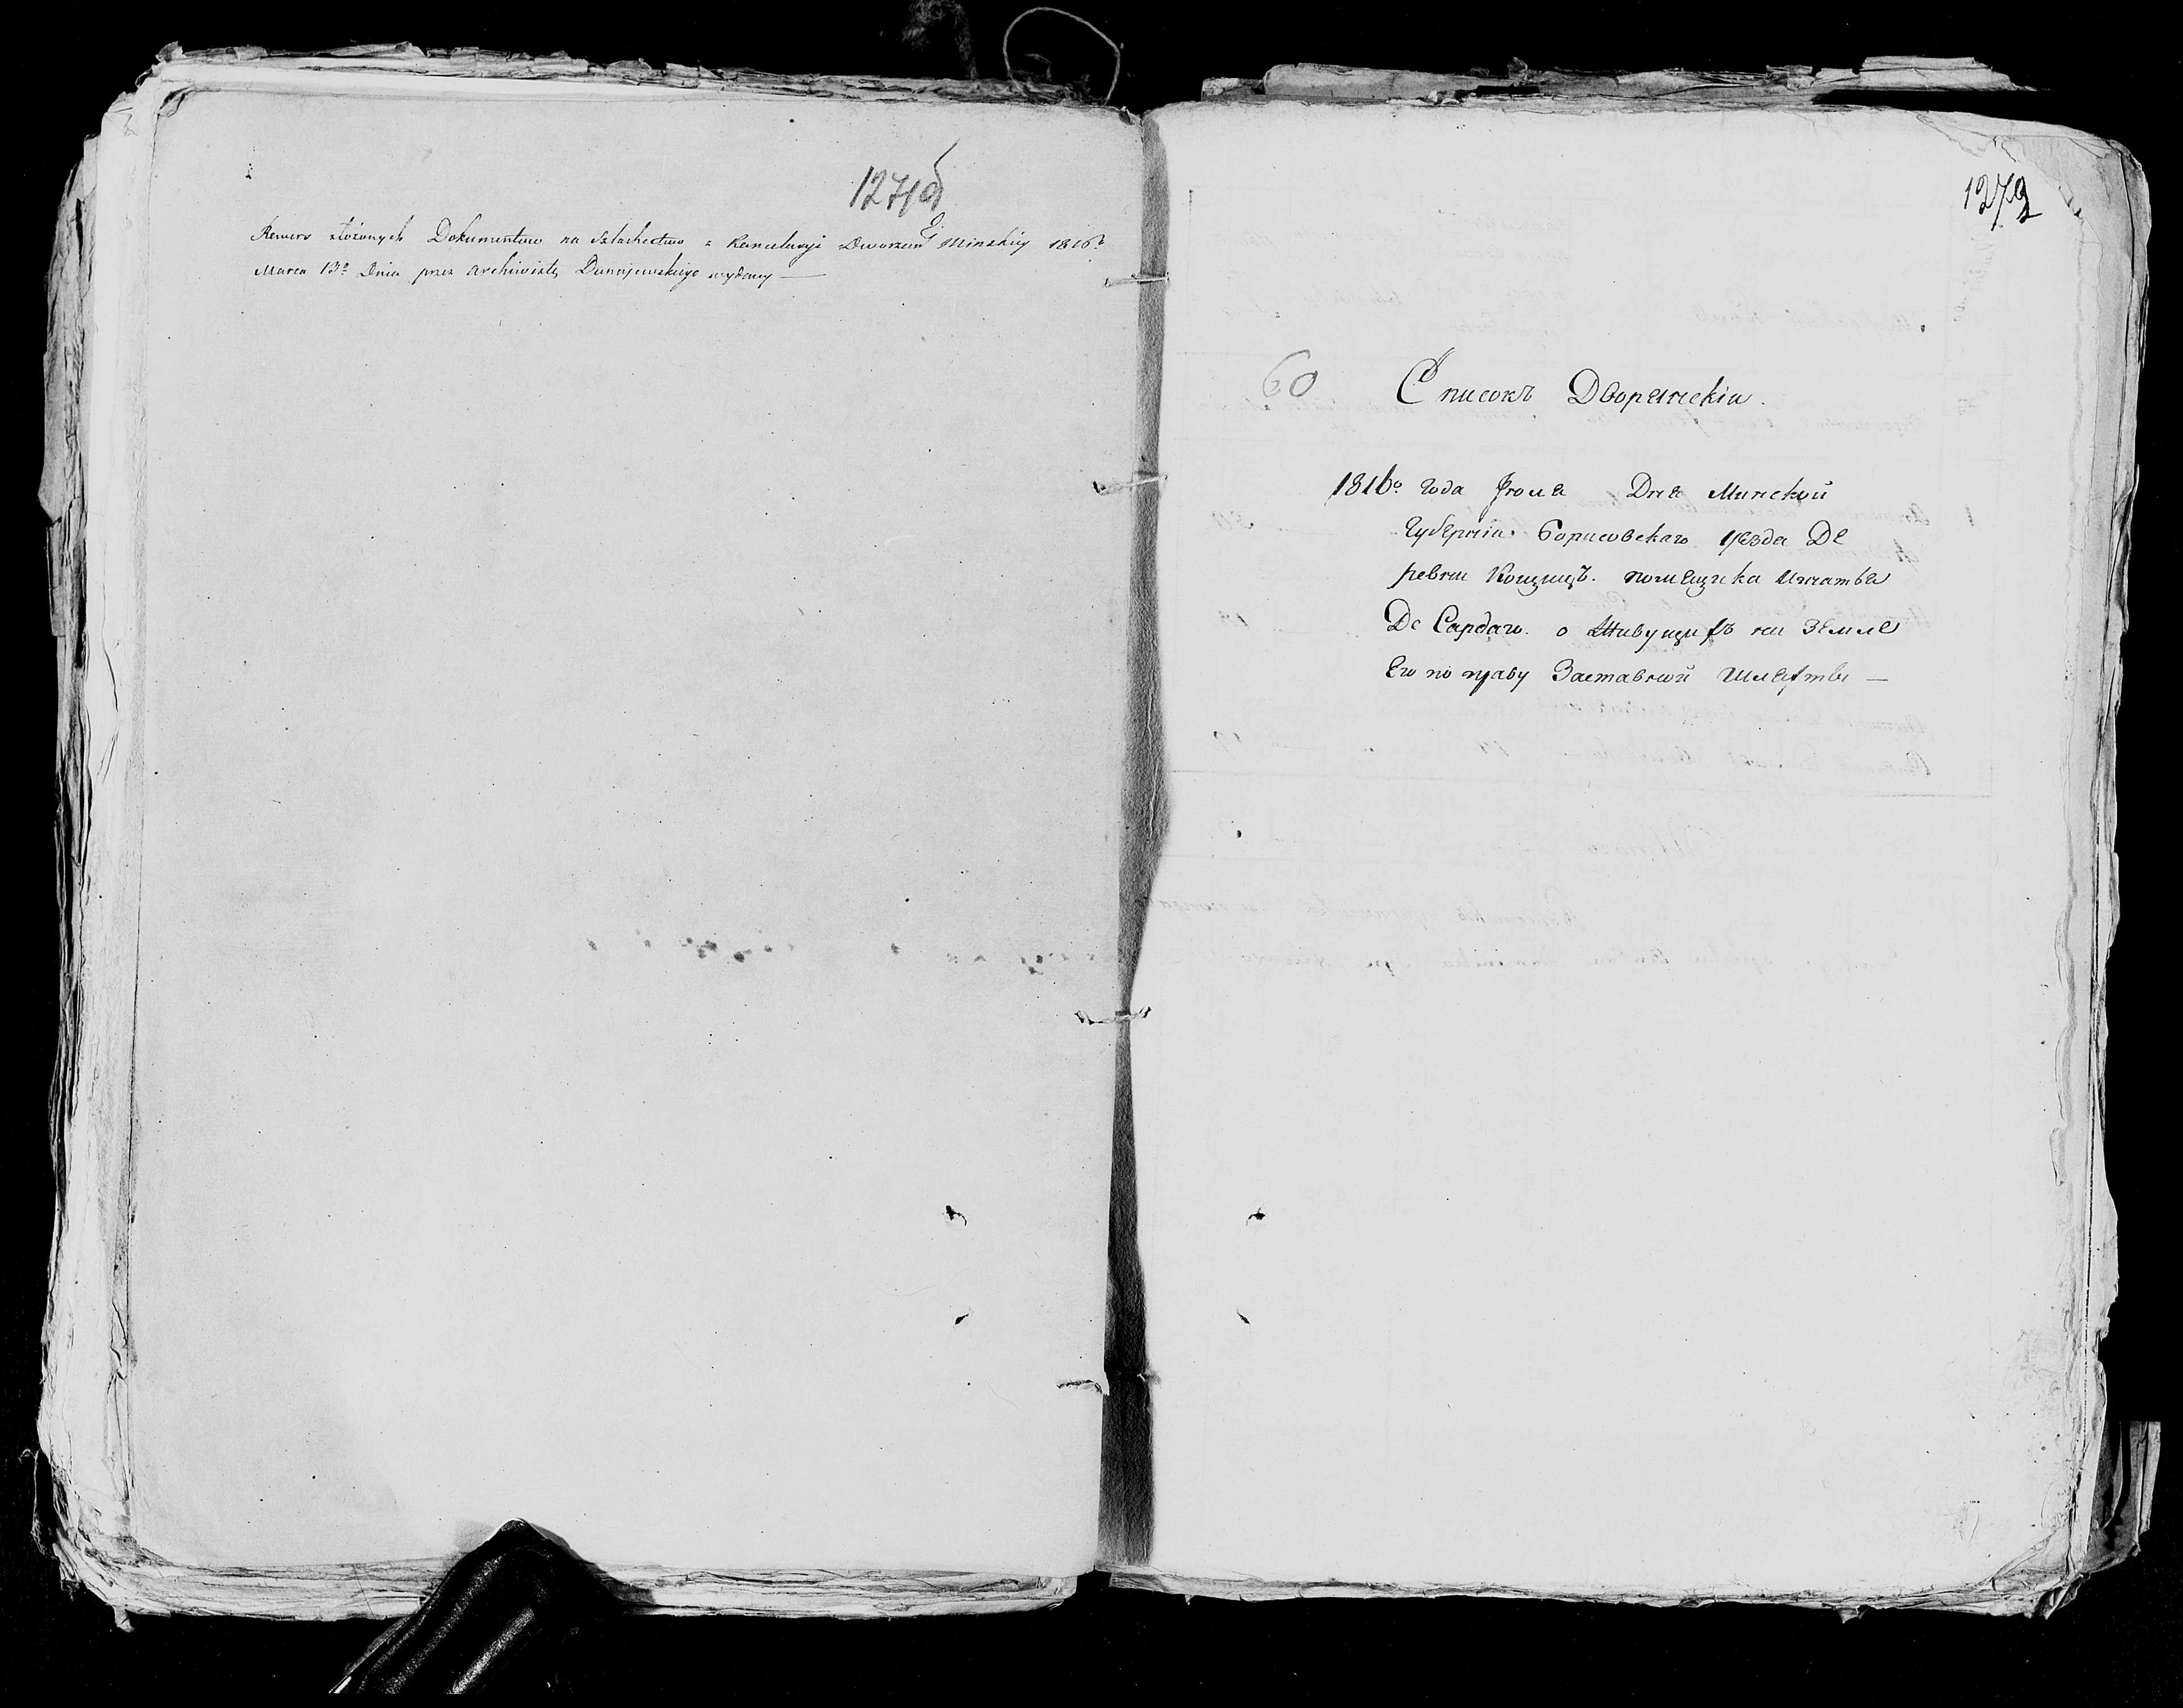 1271об
Rewers złożonych Dokumentow na Szlachectwo z Kancelaryi Dworzan Ej Minskiey 1816º
Marca 13º Dnia przez Archiwistę Dunajewskiego wydany —
1272
60
Списокъ Дворянскiи.
1816º года Iюля Дня Минской
Губернiи Борисовскаго уезда Де
ревни помещика Игнатья
Де Сардаго. о Живущихъ на Земле
Его по праву Заставной Шляхты —